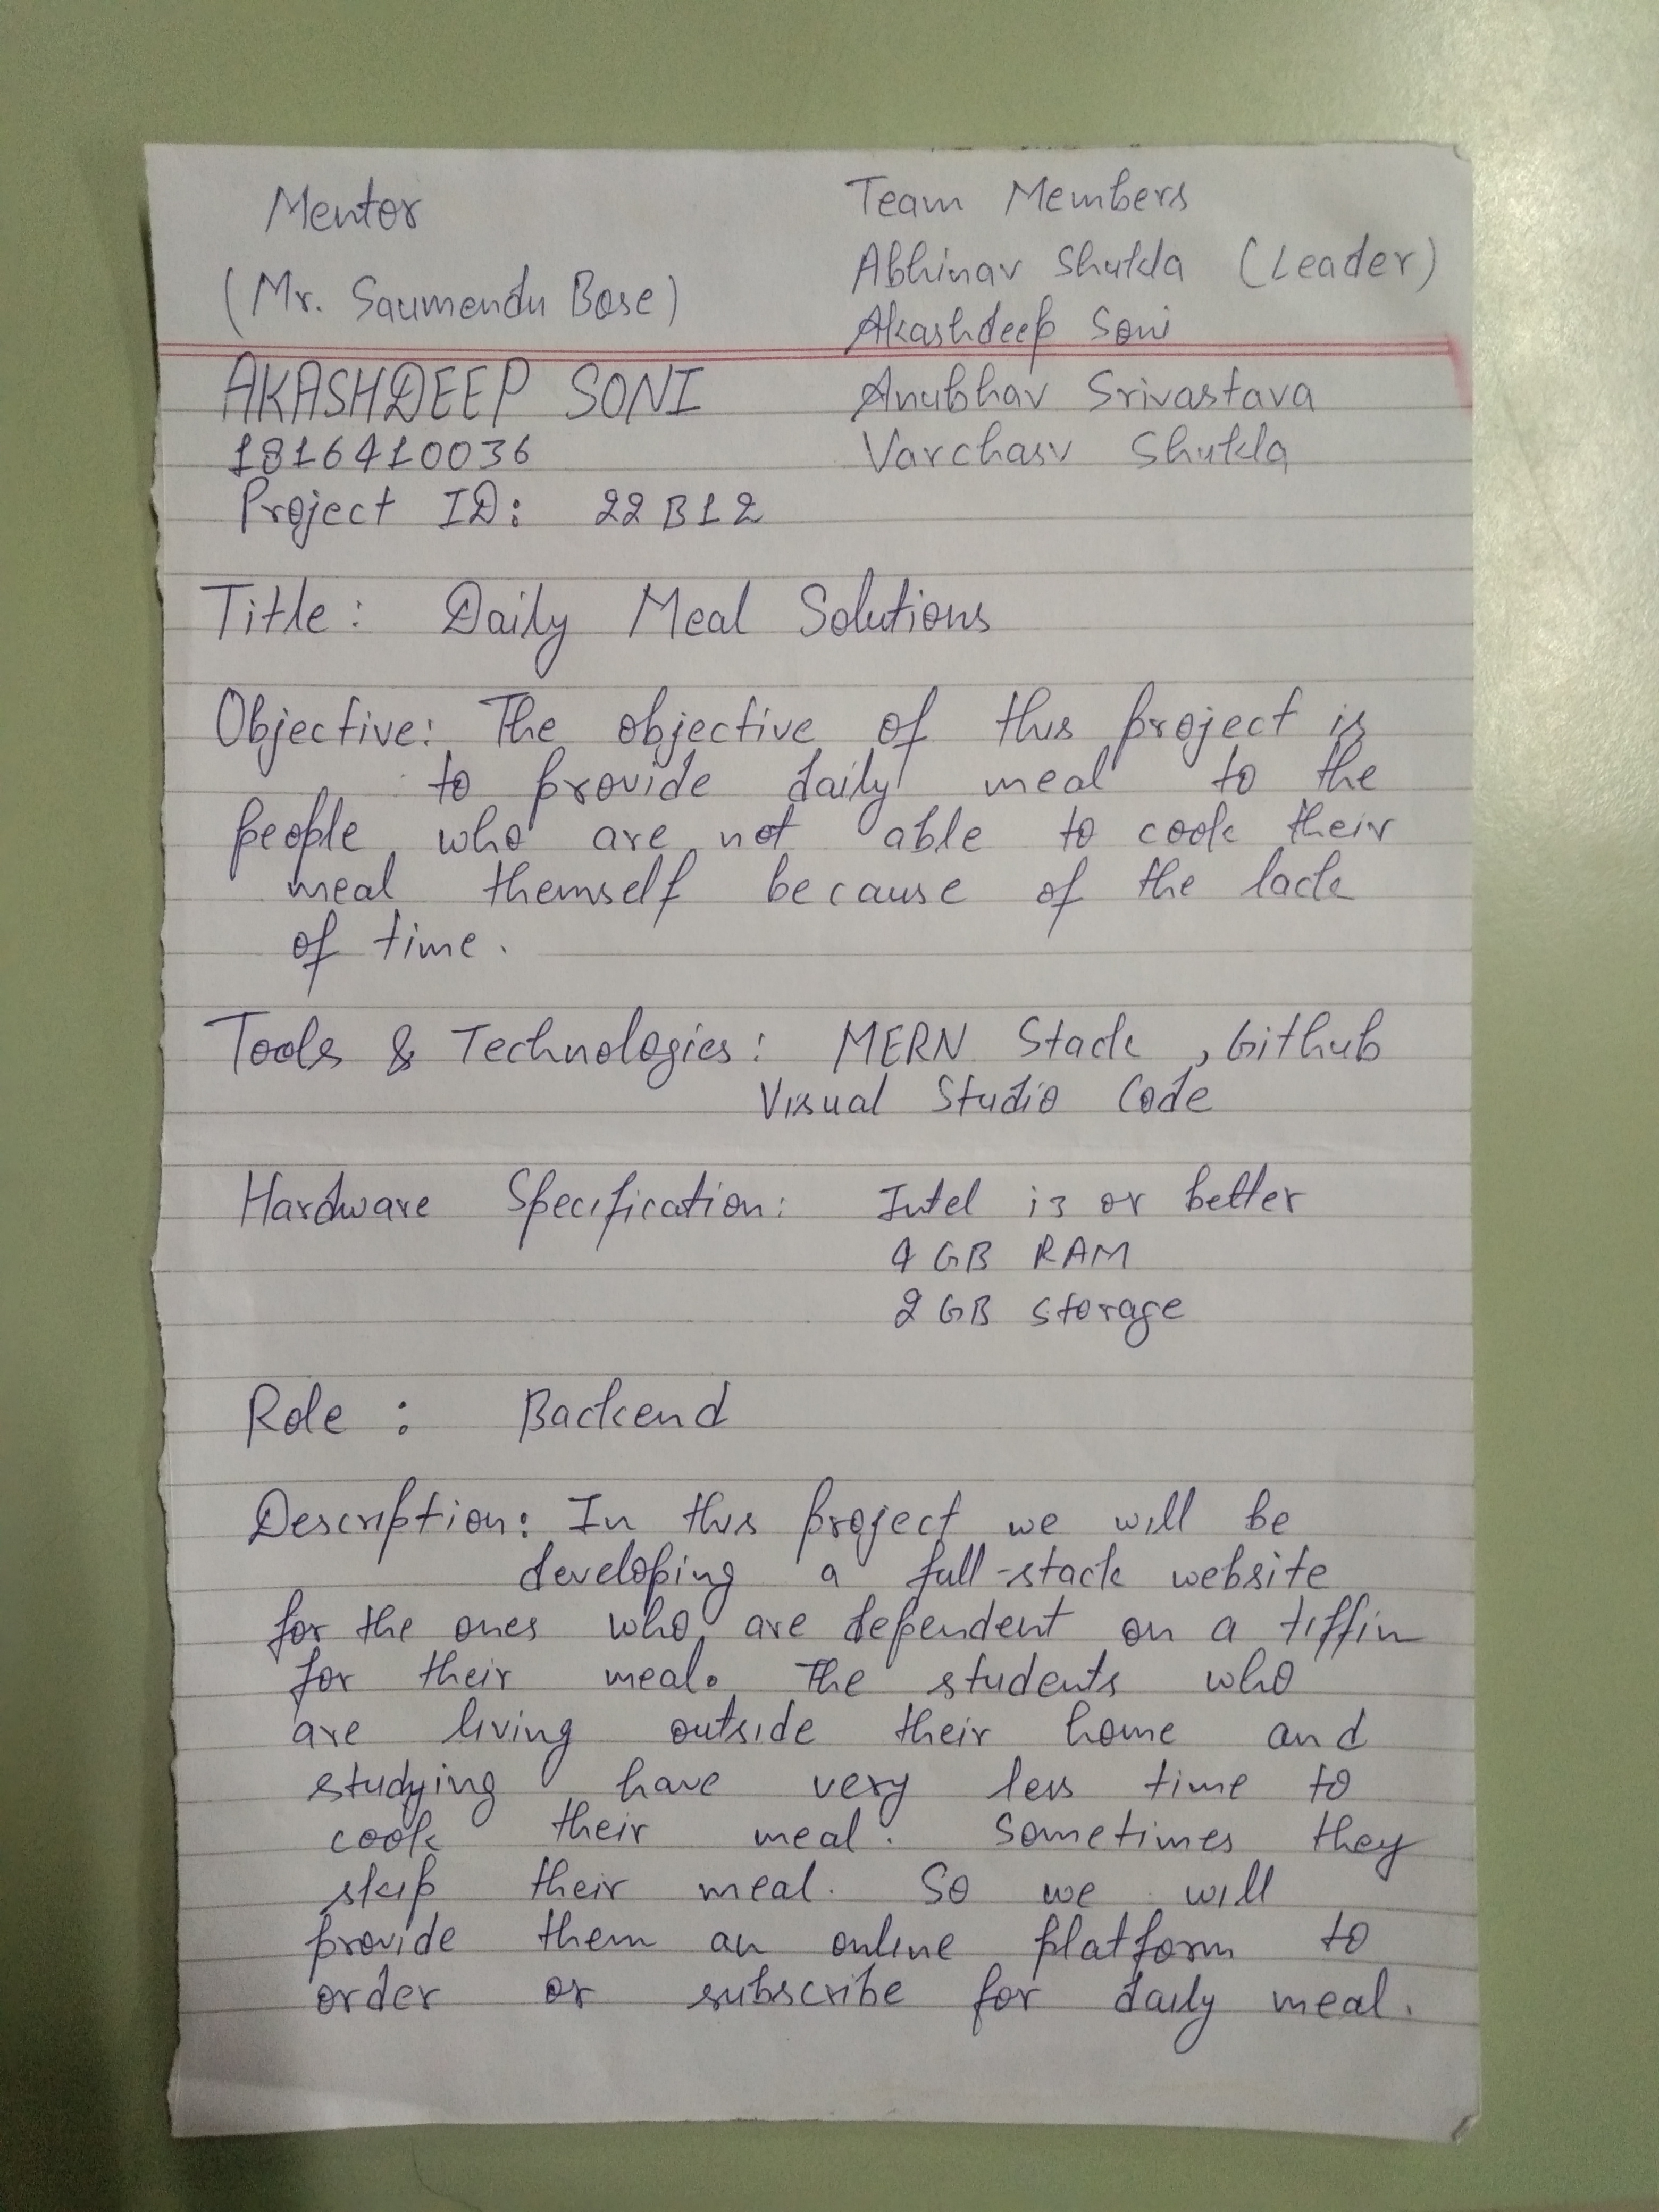 Mentor
(Mr. Saumendu Bose)
Team Members
Abhinav Shukla (Leader)
Akashdeep Soni
Anubhav Srivastava
Varchasv Shukla
AKASHDEEP SONI
1816410036
Project ID: 22B12
Title: Daily Meal Solutions
Objective: The objective of this project is
to provide daily meal to the
people who are not able to cook their
meal themself because of the lack
of time.
Tools & Technologies: MERN Stack, Github
Visual Studio Code
Hardware Specification: Intel i3 or better
4 GB RAM
2 GB storage
Role: Backend
Description: In this project we will be
developing a full-stack website
for the ones who are dependent on a tiffin
for their meal. The students who
are living outside their home and
studying have very less time to
cook their meal. Sometimes they
skip their meal. So we will
provide them an online platform to
order or subscribe for daily meal.